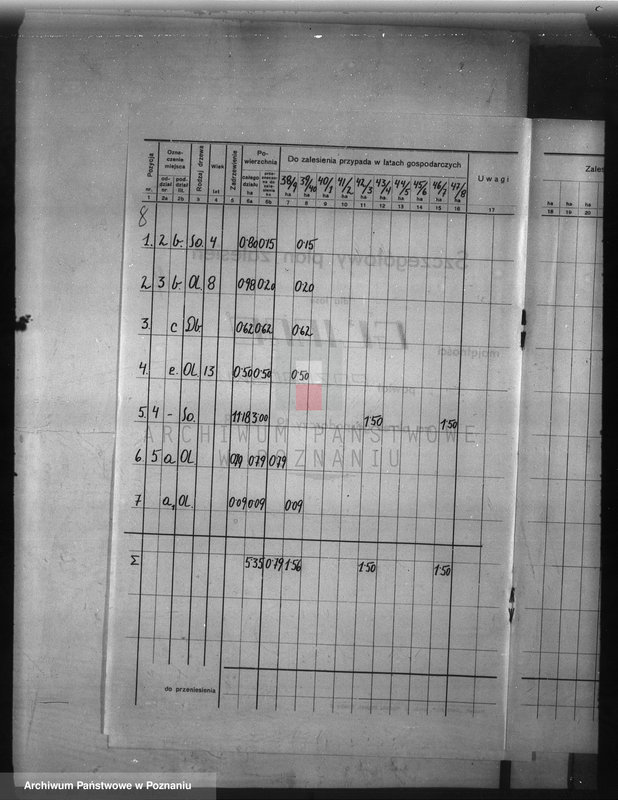 Pozycja nr.
Oznaczenie miejsca
oddział nr.
poddział lit.
Rodzaj drzewa
Wiek lat
Zadrzewienie
Powierzchnia
całego działu ha
Do zalesienia przypada w latach gospodarczych
38/9 39/40 40/1 41/2 42/3 43/4 44/5 45/6 46/7 47/8
ha ha ha ha ha ha ha ha ha ha
Uwagi
Zales
ha ha ha
1 2a 2b 3 4 5 6a 6b 7 8 9 10 11 12 13 14 15 16 17 18 19 20
8
1. 2 b. So. 4 0·80 0·15 0·15
2. 3 b. Ol. 8 0·98 0·20 0·20
3. c Db 0·62 0·62 0·62
4. e. Ol. 13 0·50 0·50 0·50
5. 4 - So. 11·18 3·00 1·50 1·50
6. 5 a Ol 0·79 0·79
7 a, Ol. 0·09 0·09 0·09
Σ 5·35 0·79 1·56 1·50 1·50
do przeniesienia
Szczegółowy plan zalesień
ARCHIWUM PAŃSTWOWE
W POZNANIU
Archiwum Państwowe w Poznaniu